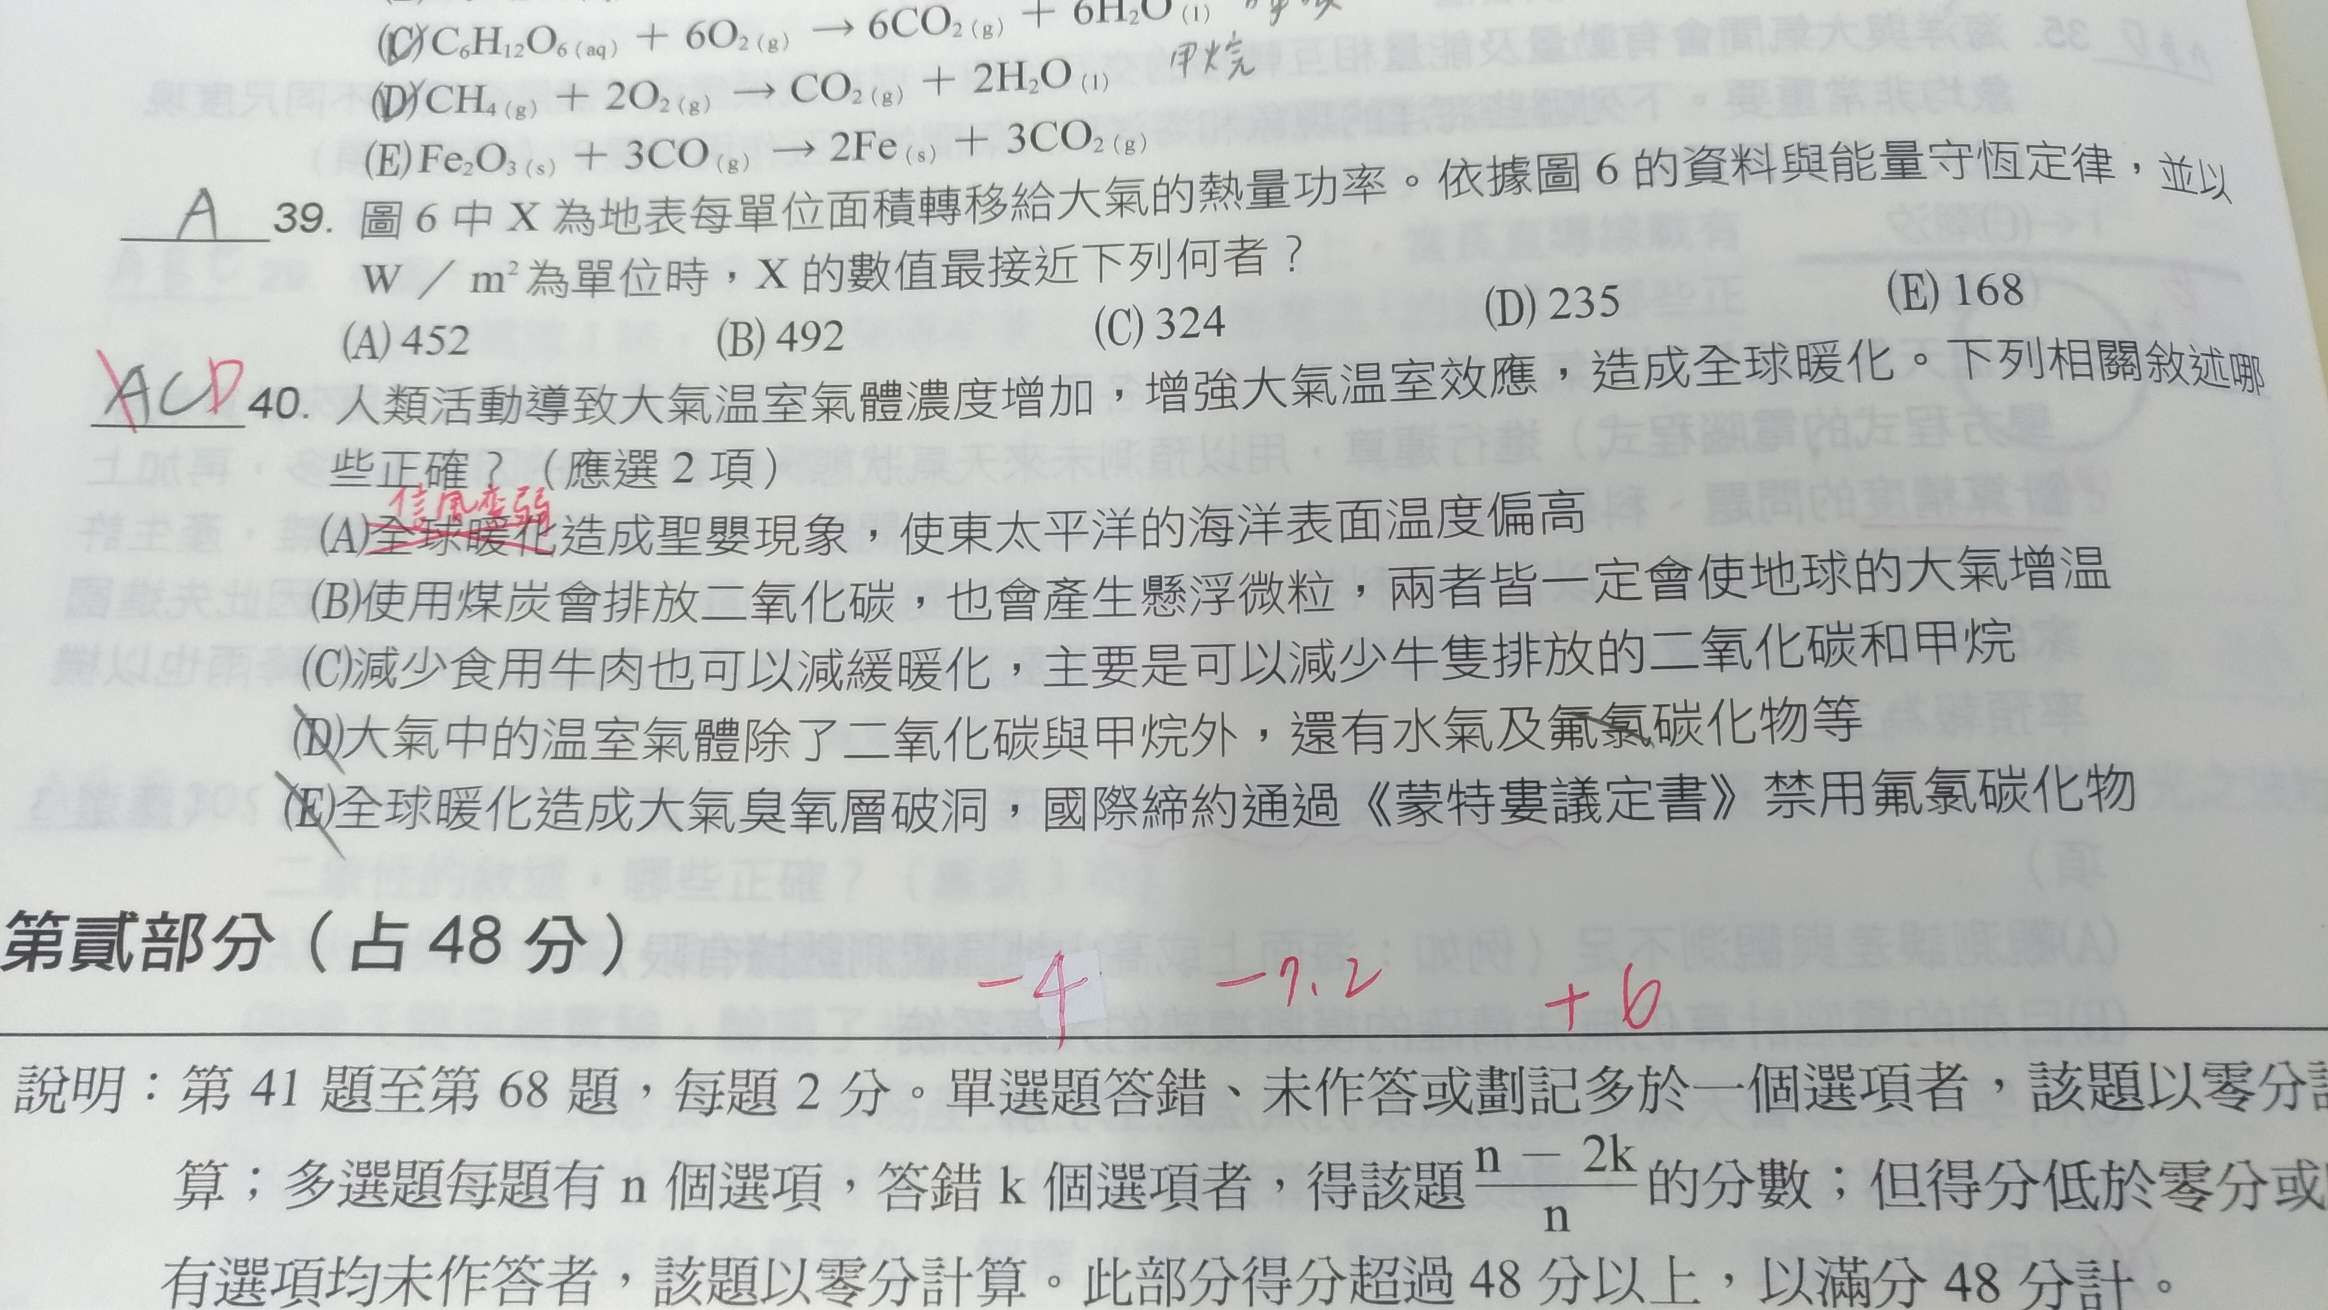 (C) C₆H₁₂O₆(aq) + 6O₂(g) → 6CO₂(g) + 6H₂O(l)
甲烷
(D) CH₄(g) + 2O₂(g) → CO₂(g) + 2H₂O(l)
(E) Fe₂O₃(s) + 3CO(g) → 2Fe(s) + 3CO₂(g)
A 39. 圖 6 中 X 為地表每單位面積轉移給大氣的熱量功率。依據圖 6 的資料與能量守恆定律，並以
W / m² 為單位時，X 的數值最接近下列何者？
(A) 452 (B) 492 (C) 324 (D) 235 (E) 168
ACD 40. 人類活動導致大氣温室氣體濃度增加，增強大氣温室效應，造成全球暖化。下列相關敘述哪
些正確？（應選 2 項）
信風變弱
(A)全球暖化造成聖嬰現象，使東太平洋的海洋表面温度偏高
(B)使用煤炭會排放二氧化碳，也會產生懸浮微粒，兩者皆一定會使地球的大氣增温
(C)減少食用牛肉也可以減緩暖化，主要是可以減少牛隻排放的二氧化碳和甲烷
(D)大氣中的温室氣體除了二氧化碳與甲烷外，還有水氣及氟氯碳化物等
(E)全球暖化造成大氣臭氧層破洞，國際締約通過《蒙特婁議定書》禁用氟氯碳化物
第貳部分（占 48 分）
-4 -7.2 +6
說明：第 41 題至第 68 題，每題 2 分。單選題答錯、未作答或劃記多於一個選項者，該題以零分計
算；多選題每題有 n 個選項，答錯 k 個選項者，得該題 (n - 2k)/n 的分數；但得分低於零分或
有選項均未作答者，該題以零分計算。此部分得分超過 48 分以上，以滿分 48 分計。